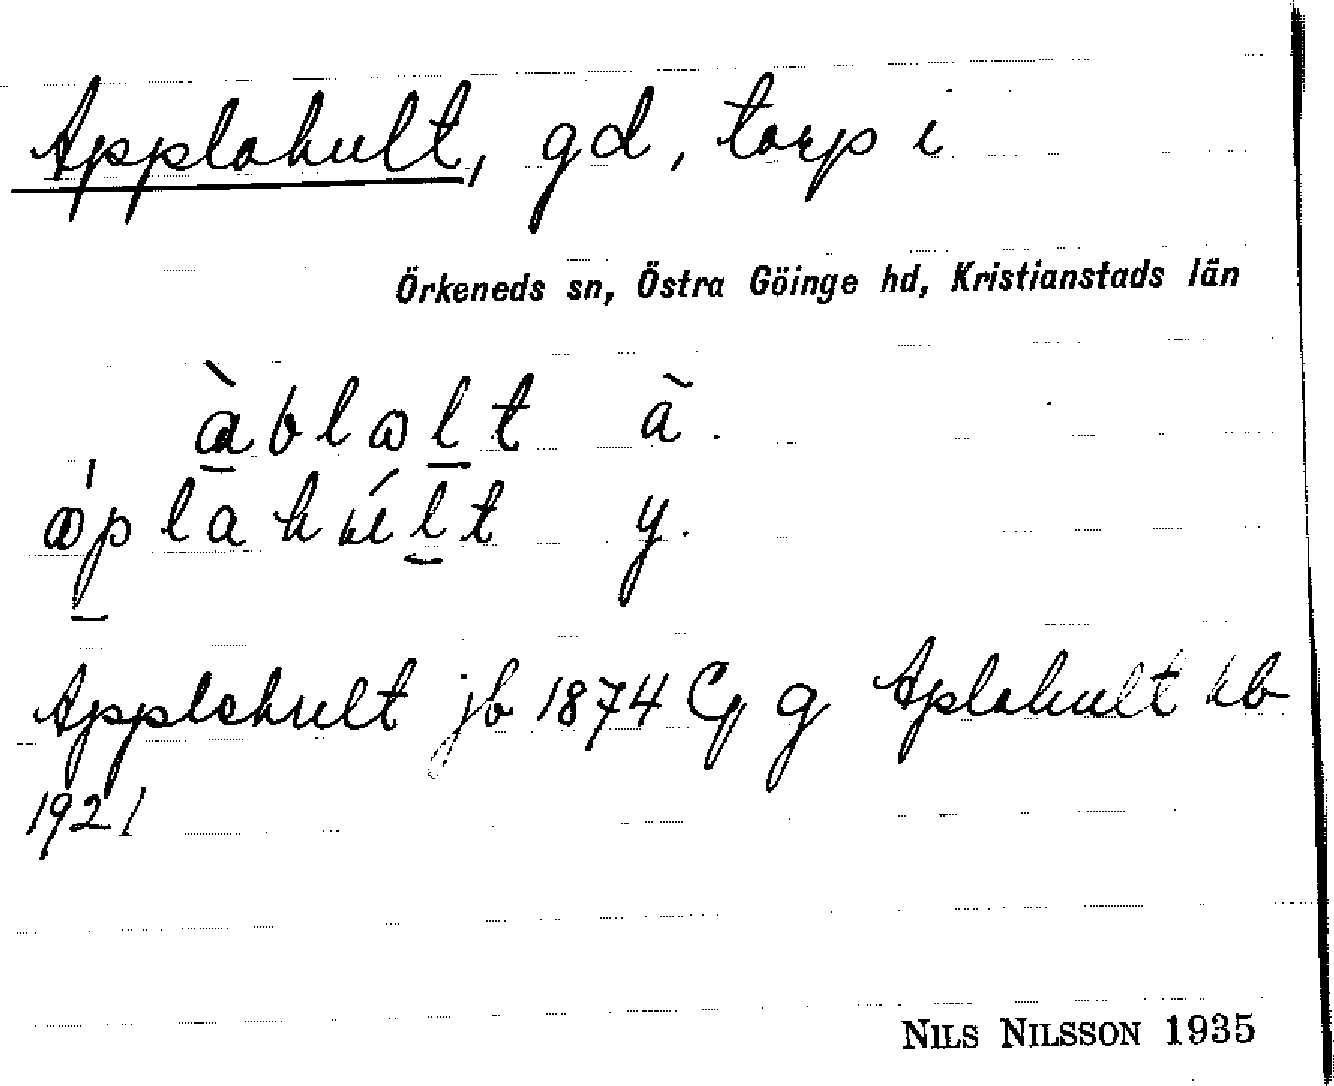 Applahult, gd, torp i
Örkeneds sn, Östra Göinge hd, Kristianstads län
àblalt ä.
áplahúlt y.
Applehult jb 1874 Cg g Aplahult kb
1921
NILS NILSSON 1935